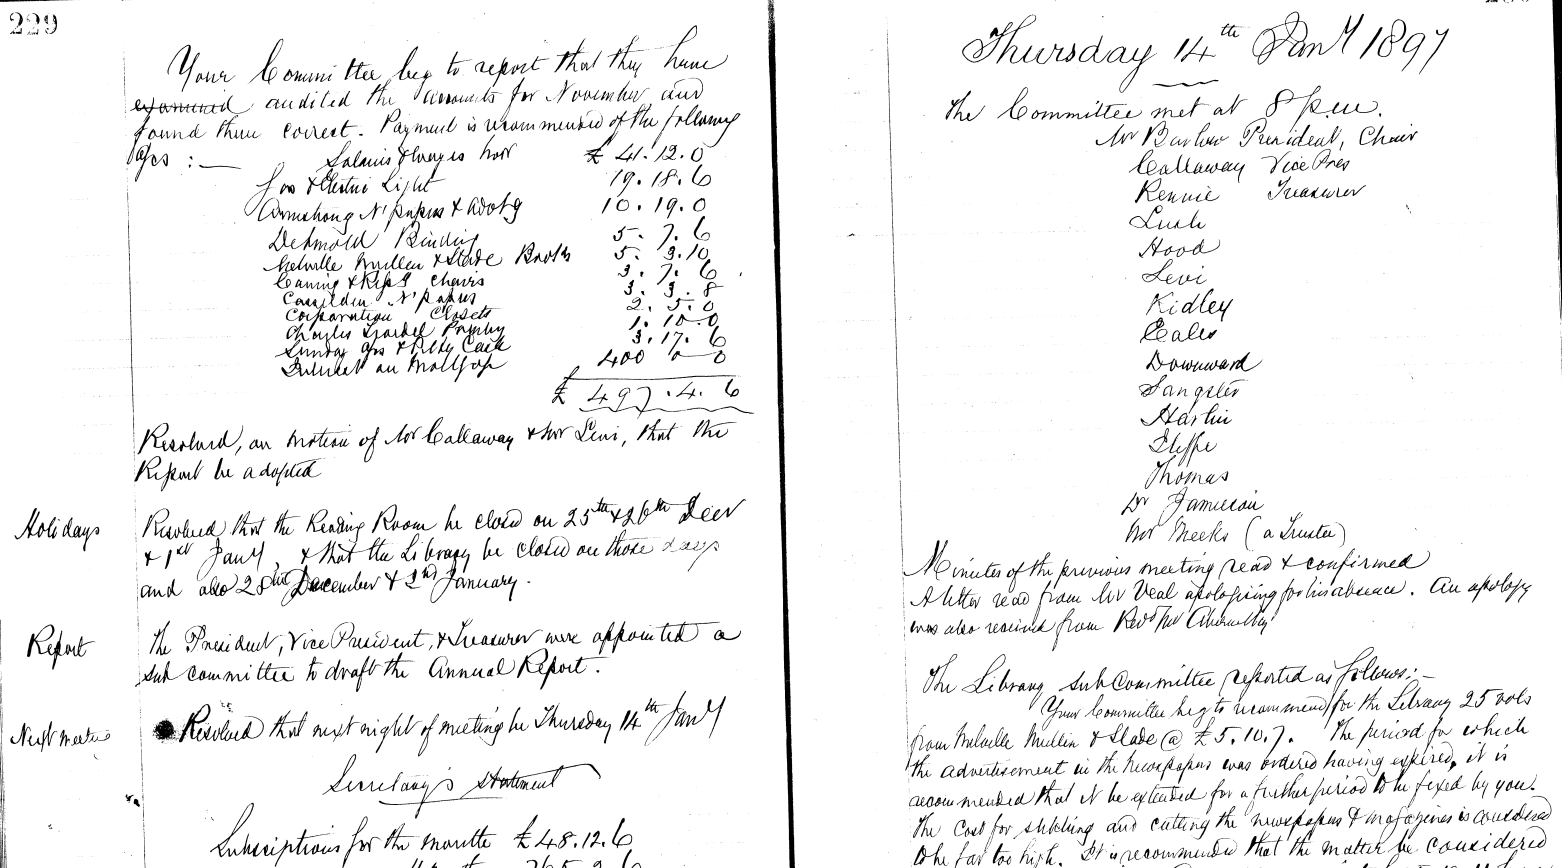 229
Your Committee beg to report that they have
examined audited the accounts for November and
found them correct. Payment is recommended of the following
a/cs :—
Salaries & Wages Novr £ 41.12.0
Gas & Electric Light 19.18.6
Armstrong N'papers & Advtg 10.19.0
Detmold Binding 5.7.6
Melville Mullen & Slade Books 5.3.10
& Chairs 3.7.6
N'papers 3.3.8
Corporation Closets 2.5.0
Charles 1.10.0
Sunday a/cs & Petty Cash 3.17.6
Interest on Mortgage 400 0 0
£ 497.4.6
Resolved, on motion of Mr Callaway & Mr Levi, that the
Report be adopted
Holidays
Resolved that the Reading Room be closed on 25th & 26th Decr
& 1st Jany, & that the Library be closed on those days
and also 28th December & 2nd January.
Report
The President, Vice President, & Treasurer were appointed a
sub committee to draft the Annual Report.
Next meeting
Resolved that next night of meeting be Thursday 14th Jany
Secretary's Statement
Subscriptions for the month £48.12.6
Thursday 14th Jany 1897
The Committee met at 8 p.m.
Mr Barlow President, Chair
Callaway Vice Pres
Rennie Treasurer
Lush
Hood
Levi
Kidley
Eales
Downward
Sangster
Harlin
Thomas
Dr Jamieson
Mr Meeks (a Trustee)
Minutes of the previous meeting read & confirmed
A letter read from Mr Veal apologising for his absence. An apology
was also received from Revd Mr Abernethy
The Library sub Committee reported as follows:—
Your Committee beg to recommend for the Library 25 vols
from Melville Mullen & Slade @ £5.10.7. The period for which
the advertisement in the newspapers was ordered having expired, it is
recommended that it be extended for a further period to be fixed by you.
The cost for stitching and cutting the newspapers & magazines is considered
to be far too high. It is recommended that the matter be considered